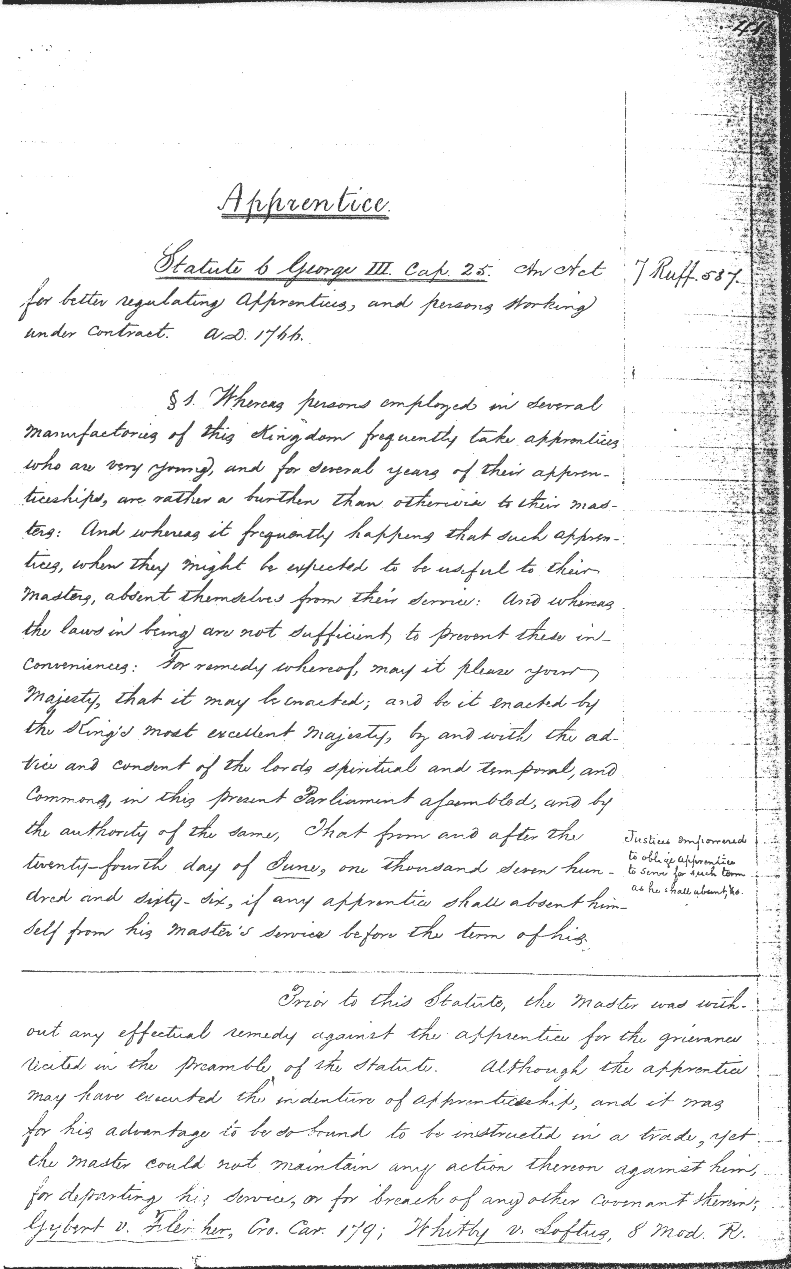 41
Apprentice.
Statute 6 George III. Cap. 25. An Act
7 Ruff. 587.
for better regulating Apprentices, and persons working
under contract. A.D. 1766.
§ 1. Whereas persons employed in several
manufactories of this Kingdom frequently take apprentices
who are very young, and for several years of their appren-
ticeships, are rather a burthen than otherwise to their mas-
ters: And whereas it frequently happens that such appren-
tices, when they might be expected to be useful to their
Masters, absent themselves from their service: And whereas
the laws in being are not sufficient, to prevent these in-
conveniences: For remedy whereof, may it please your
Majesty, that it may be enacted; and be it enacted by
the King's most excellent Majesty, by and with the ad-
vice and consent of the lords spiritual and temporal, and
Commons, in this present Parliament assembled, and by
the authority of the same, That from and after the
twenty-fourth day of June, one thousand seven hun-
dred and sixty-six, if any apprentice shall absent him-
self from his Master's service before the term of his
Justices empowered
to oblige apprentices
to serve for such term
as he shall absent, &c.
Prior to this Statute, the Master was with-
out any effectual remedy against the apprentice for the grievance
recited in the preamble of the statute. Although the apprentice
may have executed the indenture of apprenticeship, and it was
for his advantage to be so bound to be instructed in a trade, yet
the master could not maintain any action thereon against him,
for departing his service, or for breach of any other covenant therein;
Gybert v. Fletcher, Cro. Car. 179; Whitby v. Loftus, 8 Mod. R.